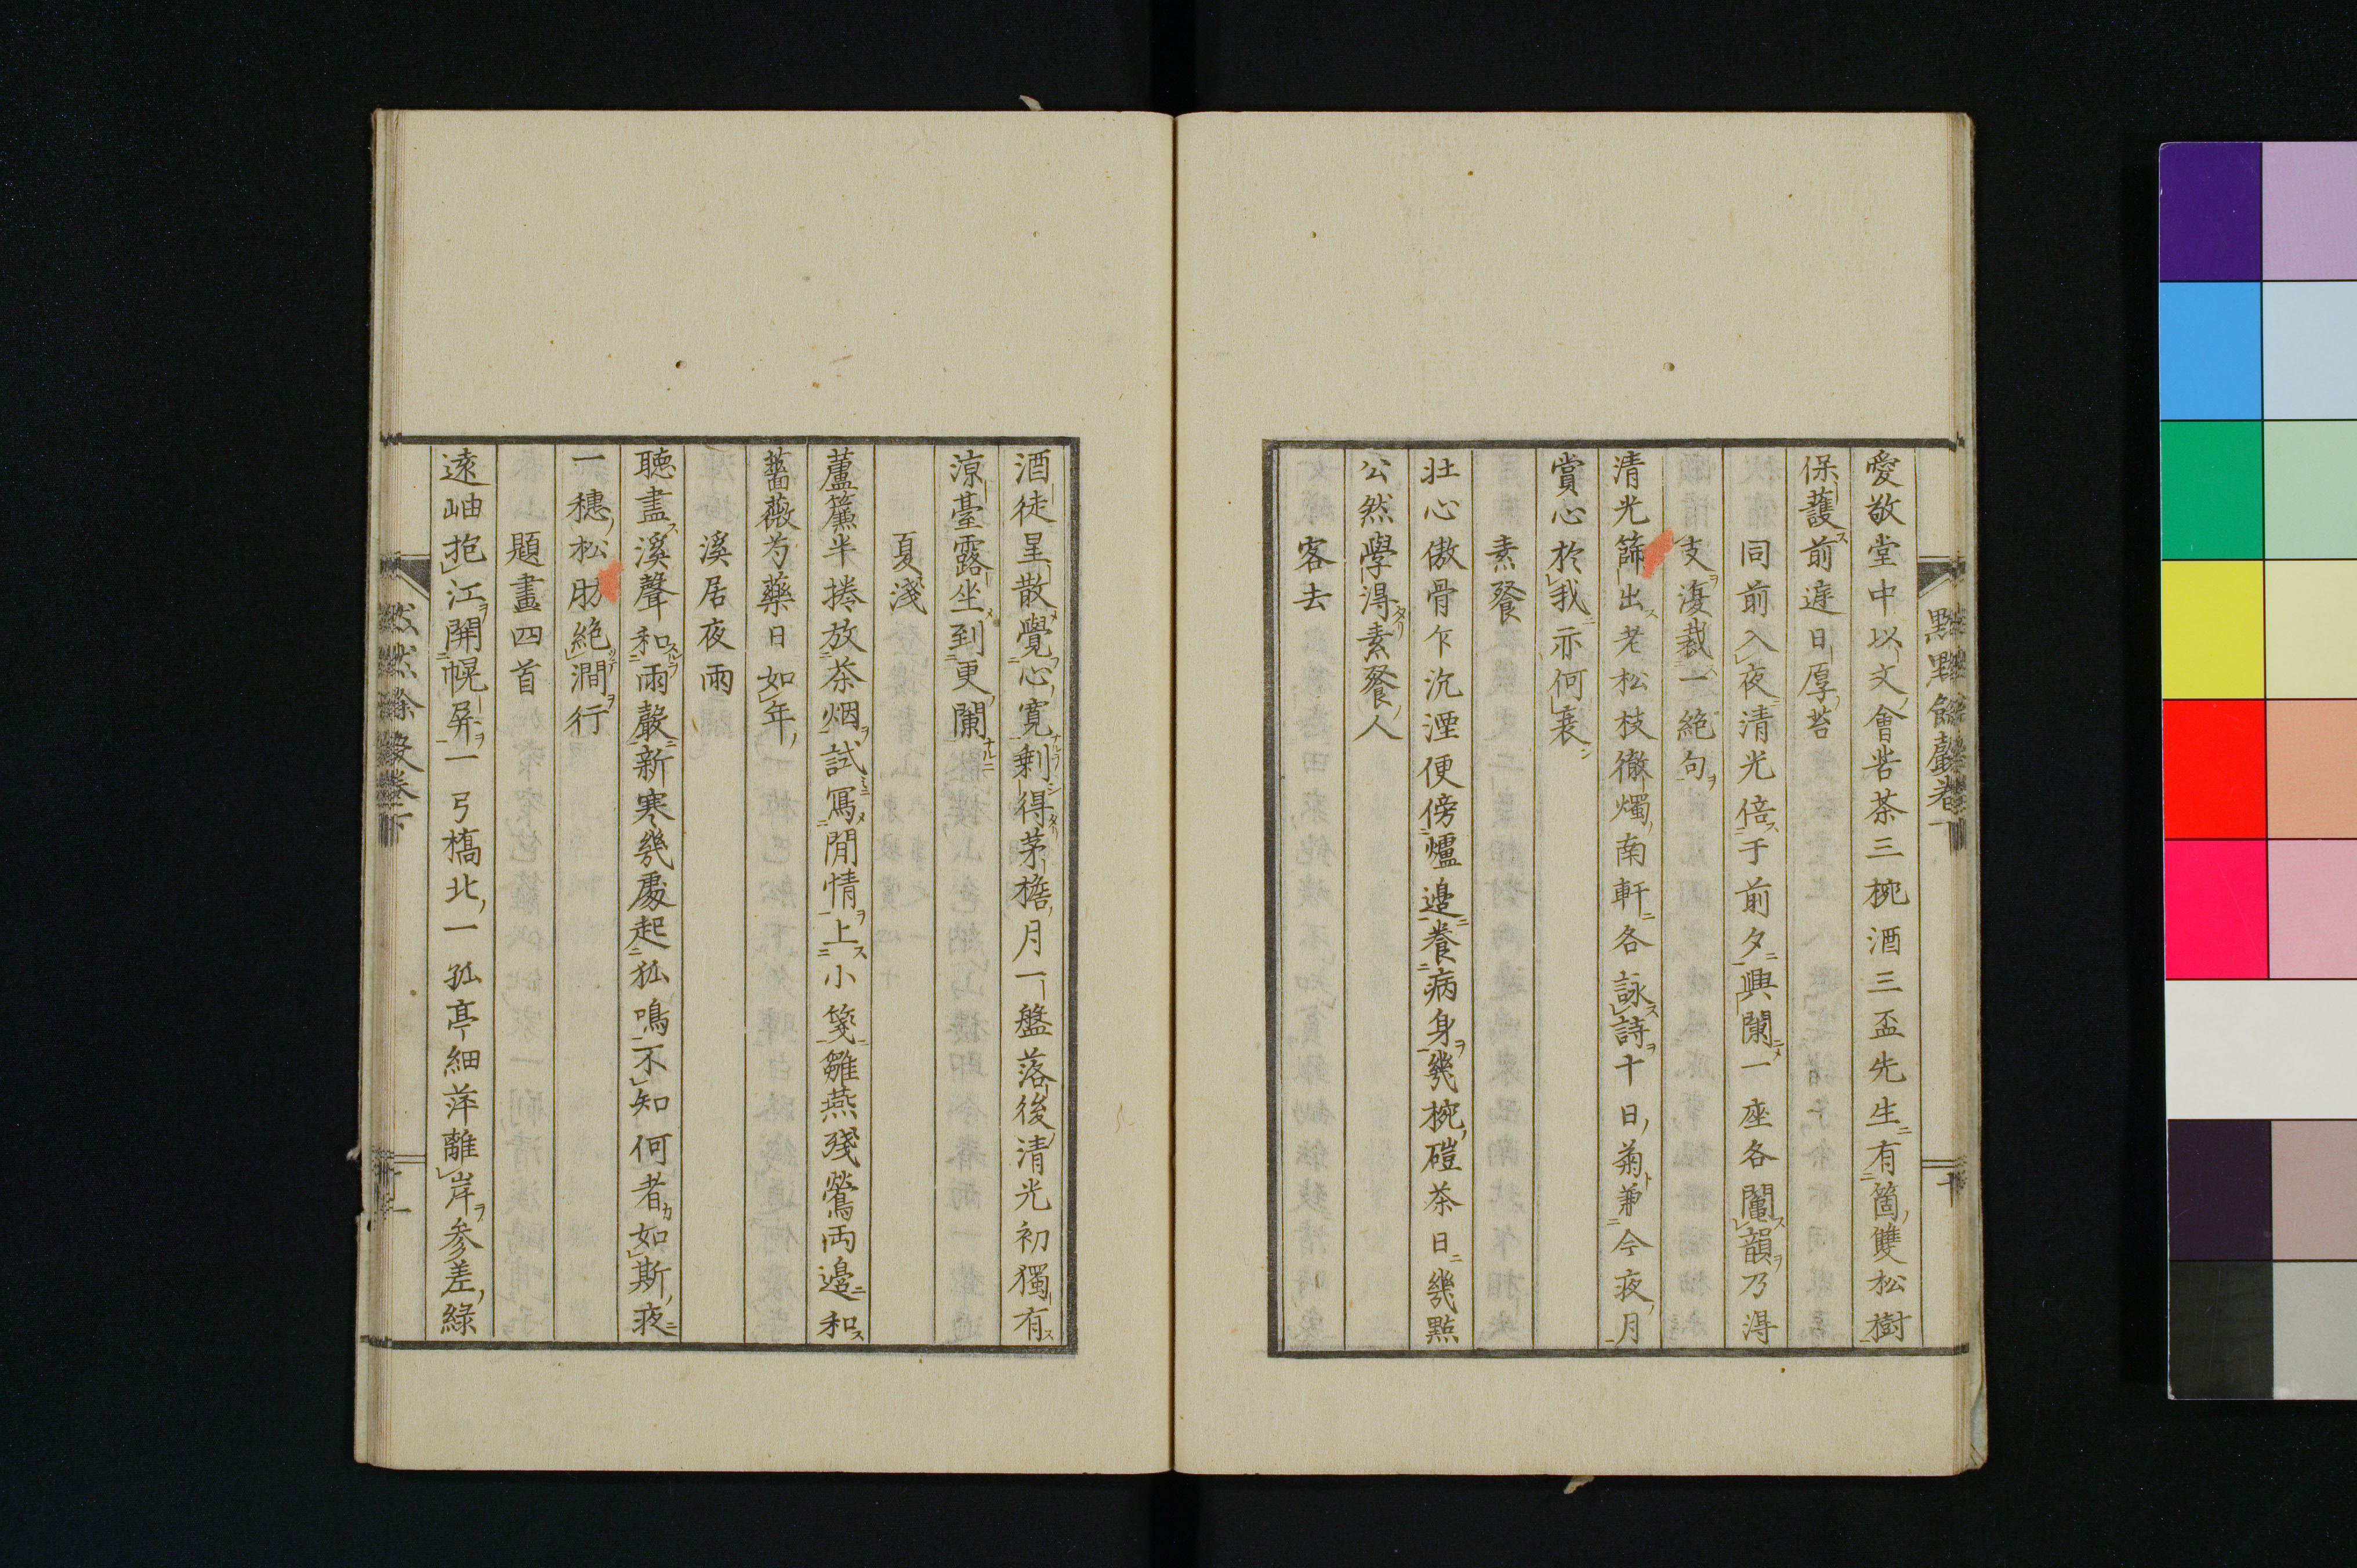 愛敬堂中以文會苦茶三椀酒三盃先生有箇雙松樹
保護前遮日厚苔
同前入夜清光倍于前夕興闌一座各鬮韻乃得
支復裁一絶句
清光篩出老松枝徹燭南軒各詠詩十日菊兼今夜月
賞心於我亦何衰
素餐
壮心傲骨乍沉湮便傍爐邊養病身幾椀磑茶日幾點
公然學得素餐人
客去
酒徒呈散覺心寛剰得茅檐月一盤落後清光初獨有
涼臺露坐到更闌
夏淺
蘆簾半捲放茶烟試寫閒情上小箋雛燕殘鶯両邊和
薔薇芍藥日如年
溪居夜雨
聴盡溪聲和雨嚴新寒幾處起狐鳴不知何者如斯夜
一穂松肪絶澗行
題畫四首
遠岫抱江開幌屏一弓橋北一孤亭細萍離岸参差緑